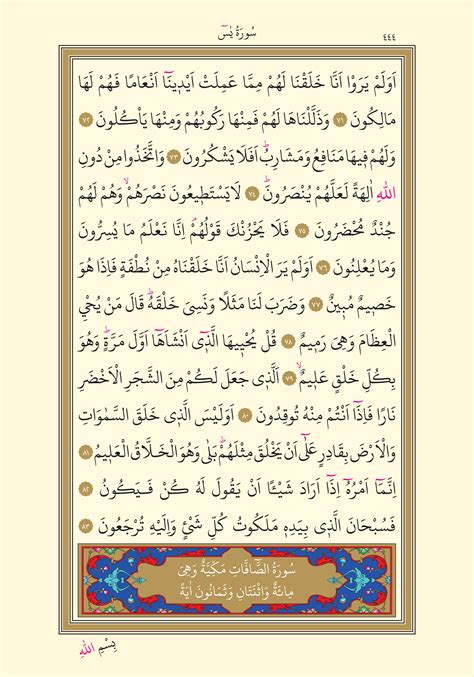 سُورَةُ يٰسٓ
٤٤٤
اَوَلَمْ يَرَوْا اَنَّا خَلَقْنَا لَهُمْ مِمَّا عَمِلَتْ اَيْدٖينَٓا اَنْعَامًا فَهُمْ لَهَا
مَالِكُونَ ﴿٧١﴾ وَذَلَّلْنَاهَا لَهُمْ فَمِنْهَا رَكُوبُهُمْ وَمِنْهَا يَأْكُلُونَ ﴿٧٢﴾
وَلَهُمْ فٖيهَا مَنَافِعُ وَمَشَارِبُؕ اَفَلَا يَشْكُرُونَ ﴿٧٣﴾ وَاتَّخَذُوا مِنْ دُونِ
اللّٰهِ اٰلِهَةً لَعَلَّهُمْ يُنْصَرُونَؕ ﴿٧٤﴾ لَا يَسْتَطٖيعُونَ نَصْرَهُمْۙ وَهُمْ لَهُمْ
جُنْدٌ مُحْضَرُونَ ﴿٧٥﴾ فَلَا يَحْزُنْكَ قَوْلُهُمْۢ اِنَّا نَعْلَمُ مَا يُسِرُّونَ
وَمَا يُعْلِنُونَ ﴿٧٦﴾ اَوَلَمْ يَرَ الْاِنْسَانُ اَنَّا خَلَقْنَاهُ مِنْ نُطْفَةٍ فَاِذَا هُوَ
خَصٖيمٌ مُبٖينٌ ﴿٧٧﴾ وَضَرَبَ لَنَا مَثَلًا وَنَسِيَ خَلْقَهُؕ قَالَ مَنْ يُحْيِ
الْعِظَامَ وَهِيَ رَمٖيمٌ ﴿٧٨﴾ قُلْ يُحْيٖيهَا الَّذٖٓي اَنْشَاَهَٓا اَوَّلَ مَرَّةٍؕ وَهُوَ
بِكُلِّ خَلْقٍ عَلٖيمٌۙ ﴿٧٩﴾ اَلَّذٖي جَعَلَ لَكُمْ مِنَ الشَّجَرِ الْاَخْضَرِ
نَارًا فَاِذَٓا اَنْتُمْ مِنْهُ تُوقِدُونَ ﴿٨٠﴾ اَوَلَيْسَ الَّذٖي خَلَقَ السَّمٰوَاتِ
وَالْاَرْضَ بِقَادِرٍ عَلٰٓى اَنْ يَخْلُقَ مِثْلَهُمْؕ بَلٰى وَهُوَ الْخَلَّاقُ الْعَلٖيمُ ﴿٨١﴾
اِنَّمَٓا اَمْرُهُٓ اِذَٓا اَرَادَ شَيْـًٔا اَنْ يَقُولَ لَهُ كُنْ فَيَكُونُ ﴿٨٢﴾
فَسُبْحَانَ الَّذٖي بِيَدِهٖ مَلَكُوتُ كُلِّ شَيْءٍ وَاِلَيْهِ تُرْجَعُونَ ﴿٨٣﴾
سُورَةُ الصَّٓافَّاتِ مَكِّيَّةٌ وَهِيَ
مِائَةٌ وَاثْنَتَانِ وَثَمَانُونَ اٰيَةً
بِسْمِ اللّٰهِ